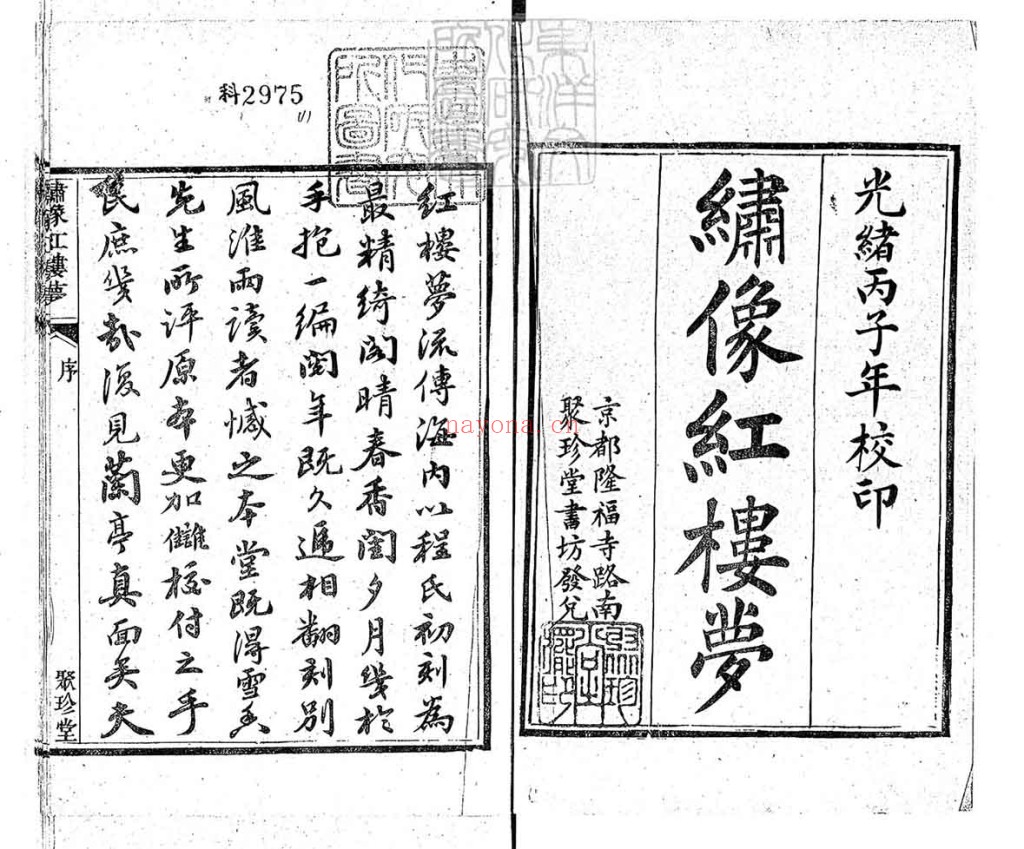 光緒丙子年校印
繡像紅樓夢
京都隆福寺路南
聚珍堂書坊發兌
科2975
紅樓夢流傳海内以程氏初刻為
最精綺閣晴春香閨夕月幾於
手抱一編閱年既久遞相翻刻別
風淮雨讀者憾之本堂既得雪香
先生所評原本更加讎校付之手
民庶幾哉復見蘭亭真面矣夫
繡像紅樓夢
序
聚珍堂
nayona.cn